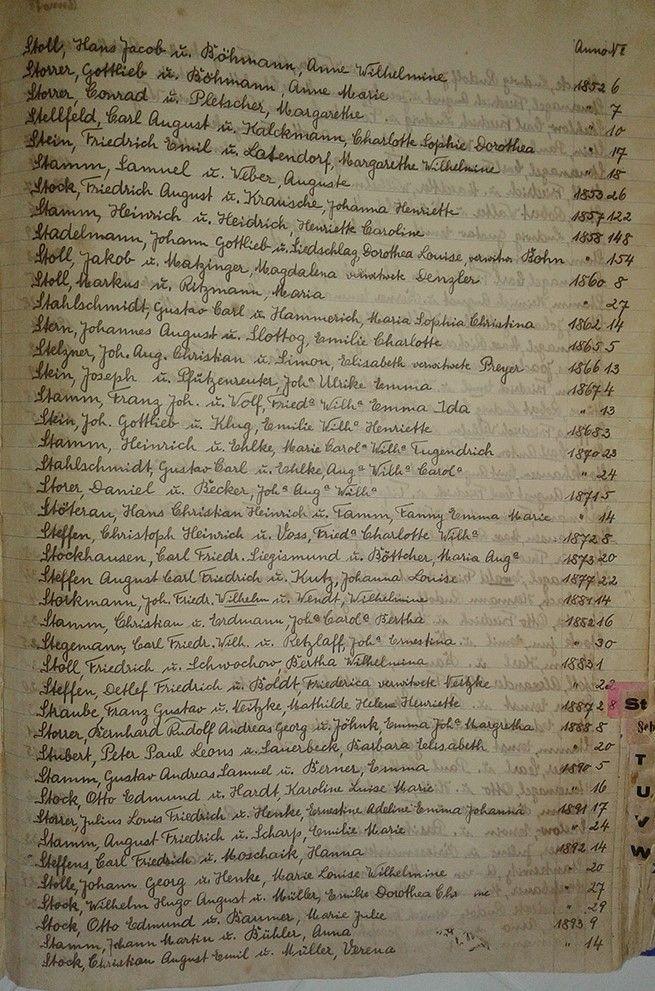 Anno Nº
Stoll, Hans Jacob u. Böhmann, Anne Wilhelmine 1852 6
Storrer, Gottlieb u. Böhmann, Anne Marie " 7
Storrer, Conrad u. Pletscher, Margarethe " 10
Stellfeld, Carl August u. Kalckmann, Charlotte Sophie Dorothea " 17
Stein, Friedrich Emil u. Latendorf, Margarethe Wilhelmine " 18
Stamm, Samuel u. Weber, Auguste 1853 26
Stock, Friedrich August u. Krausche, Johanna Henriette 1857 122
Stamm, Heinrich u. Heidrich, Henriette Caroline 1858 148
Stadelmann, Johann Gottlieb u. Liedschlag, Dorothea Louise, verwitw. Bohn " 154
Stoll, Jakob u. Matzinger, Magdalena verwitwete Denzler 1860 8
Stoll, Markus u. Ritzmann, Maria " 27
Stahlschmidt, Gustav Carl u. Hammerich, Maria Sophia Christina 1862 14
Stern, Johannes August u. Slottog, Emilie Charlotte 1865 5
Stelzner, Joh. Aug. Christian u. Simon, Elisabeth verwitwete Preyer 1866 13
Stein, Joseph u. Pfützenreuter, Johª Ulrike Emma 1867 4
Stamm, Franz Joh. u. Wolf, Friedª Wilhª Emma Ida " 13
Stein, Joh. Gottlieb u. Klug, Emilie Wilhª Henriette 1868 3
Stamm, Heinrich u. Ehlke, Marie Carolª Wilhª Tugendrich 1870 23
Stahlschmidt, Gustav Carl u. Ehlke Augª Wilhª Carolª " 24
Storer, Daniel u. Becker, Johª Augª Wilhª 1871 5
Stöterau, Hans Christian Heinrich u. Tamm, Fanny Emma Marie " 14
Steffen, Christoph Heinrich u. Voss, Friedª Charlotte Wilhª 1872 8
Stockhausen, Carl Friedr. Siegismund u. Böttcher, Maria Augª 1873 20
Steffen August Carl Friedrich u. Kutz, Johanna Louise 1877 22
Storkmann, Joh. Friedr. Wilhelm u. Wendt, Wilhelmine 1881 14
Stamm, Christian u. Erdmann Johª Carolª Bertha 1882 16
Stegemann, Carl Friedr. Wilh. u. Retzlaff, Johª Ernestina " 30
Stoll, Friedrich u. Schwochow Bertha Wilhelmina 1882 1
Steffen, Detlef Friedrich u. Boldt Friederica verwitwete Neitzke " 22
Straube, Franz Gustav u. Neitzke, Mathilde Helene Henriette 1887 28
Storrer Bernhard Rudolf Andreas Georg u. Jöhnk, Emma Johª Margretha 1888 8
Stubert, Peter Paul Leons u. Sauerbeck, Barbara Elisabeth " 20
Stamm, Gustav Andreas Samuel u. Berner, Emma 1890 5
Stock, Otto Edmund u. Hardt, Karoline Luise Marie " 16
Storrer, Julius Louis Friedrich u. Henke, Ernestine Adeline Emma Johanna 1891 17
Stamm, August Friedrich u. Scharp, Emilie Marie " 24
Steffens, Carl Friedrich u. Moschaik, Hanna 1892 14
Stolle, Johann Georg u. Henke, Marie Louise Wilhelmine " 20
Stock, Wilhelm Hugo August u. Müller, Emilie Dorothea " 27
Stock, Otto Edmund u. Baumer, Marie Julie " 29
Stamm, Johann Martin u. Bühler, Anna 1893 9
Stock, Christian August Emil u. Müller, Verena " 14
St
Sch
T
U
V
W